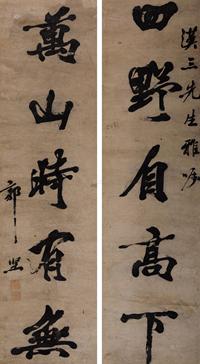 四野自高下
漢三先生雅
萬山時有無
郭